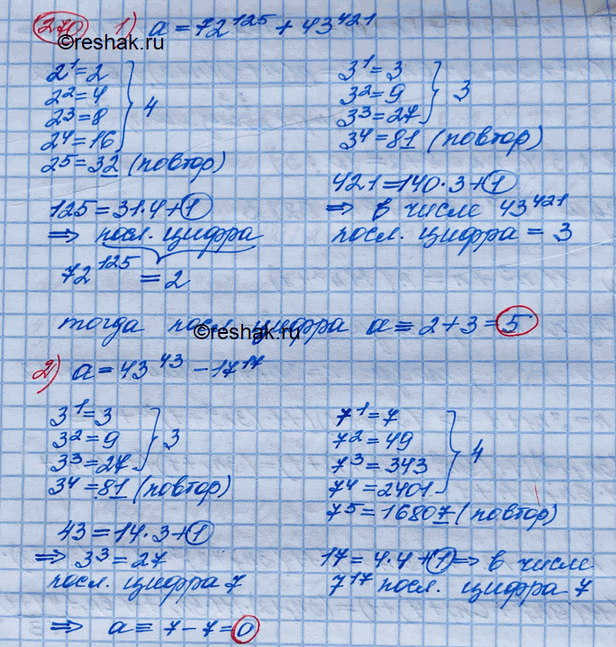 270 1) a = 72^125 + 43^421
©reshak.ru
2^1 = 2
2^2 = 4
2^3 = 8
2^4 = 16
} 4
2^5 = 32 (повтор)
125 = 31·4 + 1
⇒ посл. цифра
72^125 = 2
3^1 = 3
3^2 = 9
3^3 = 27
} 3
3^4 = 81 (повтор)
421 = 140·3 + 1
⇒ в числе 43^421
посл. цифра = 3
тогда посл. цифра a = 2 + 3 = 5
©reshak.ru
2) a = 43^43 − 17^17
3^1 = 3
3^2 = 9
3^3 = 27
} 3
3^4 = 81 (повтор)
43 = 14·3 + 1
⇒ 3^3 = 27
посл. цифра 7
7^1 = 7
7^2 = 49
7^3 = 343
7^4 = 2401
} 4
7^5 = 16807 (повтор)
17 = 4·4 + 1 ⇒ в числе
7^17 посл. цифра 7
⇒ a = 7 − 7 = 0